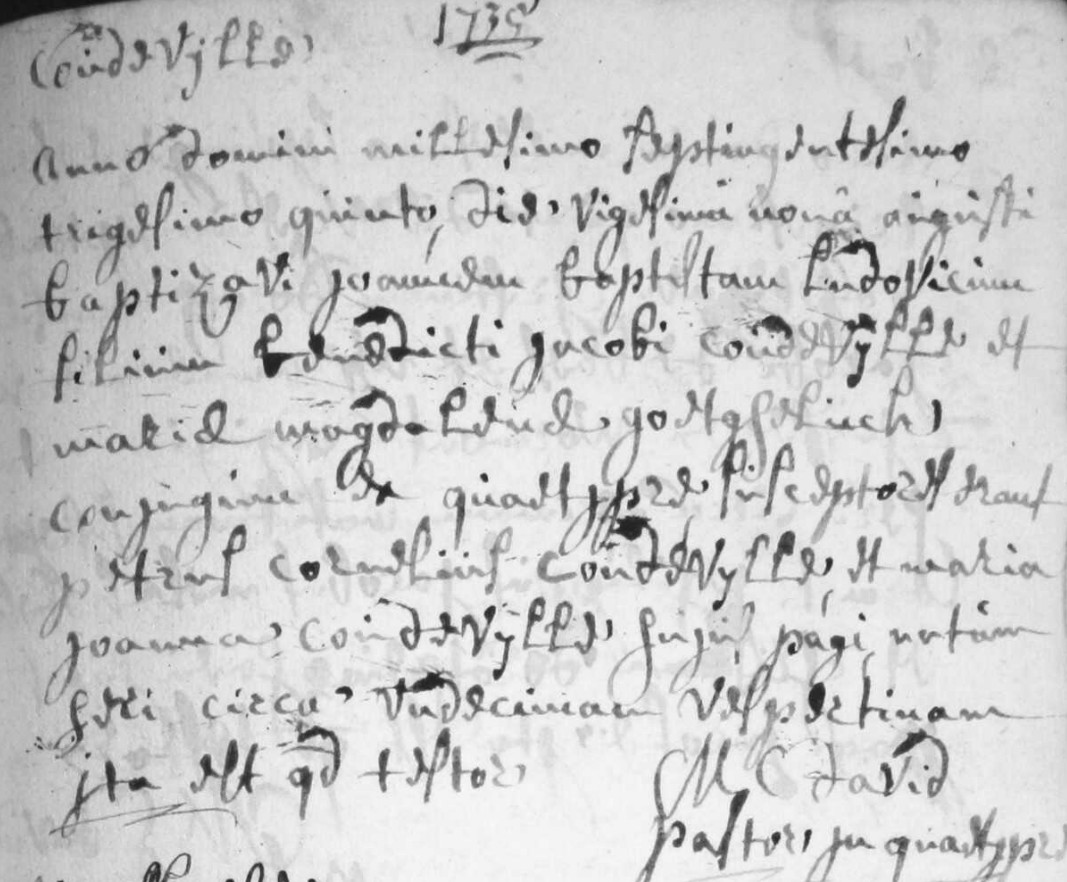 1735
CoudeVylle
Anno domini millesimo septingentesimo
trigesimo quinto, die vigesima nona augusti
baptizavi joannem baptistam ludovicum
filium benedicti jacobi coudeVylle et
mariæ magdalenæ goetgheluck
conjugum ex quaetypre susceptores erant
petrus cornelius CoudeVylle, et maria
joanna CoudeVylle hujus pagi, natum
heri circa undecimam vespertinam
jta est qd testor
M C david
pastor jn quaetypre